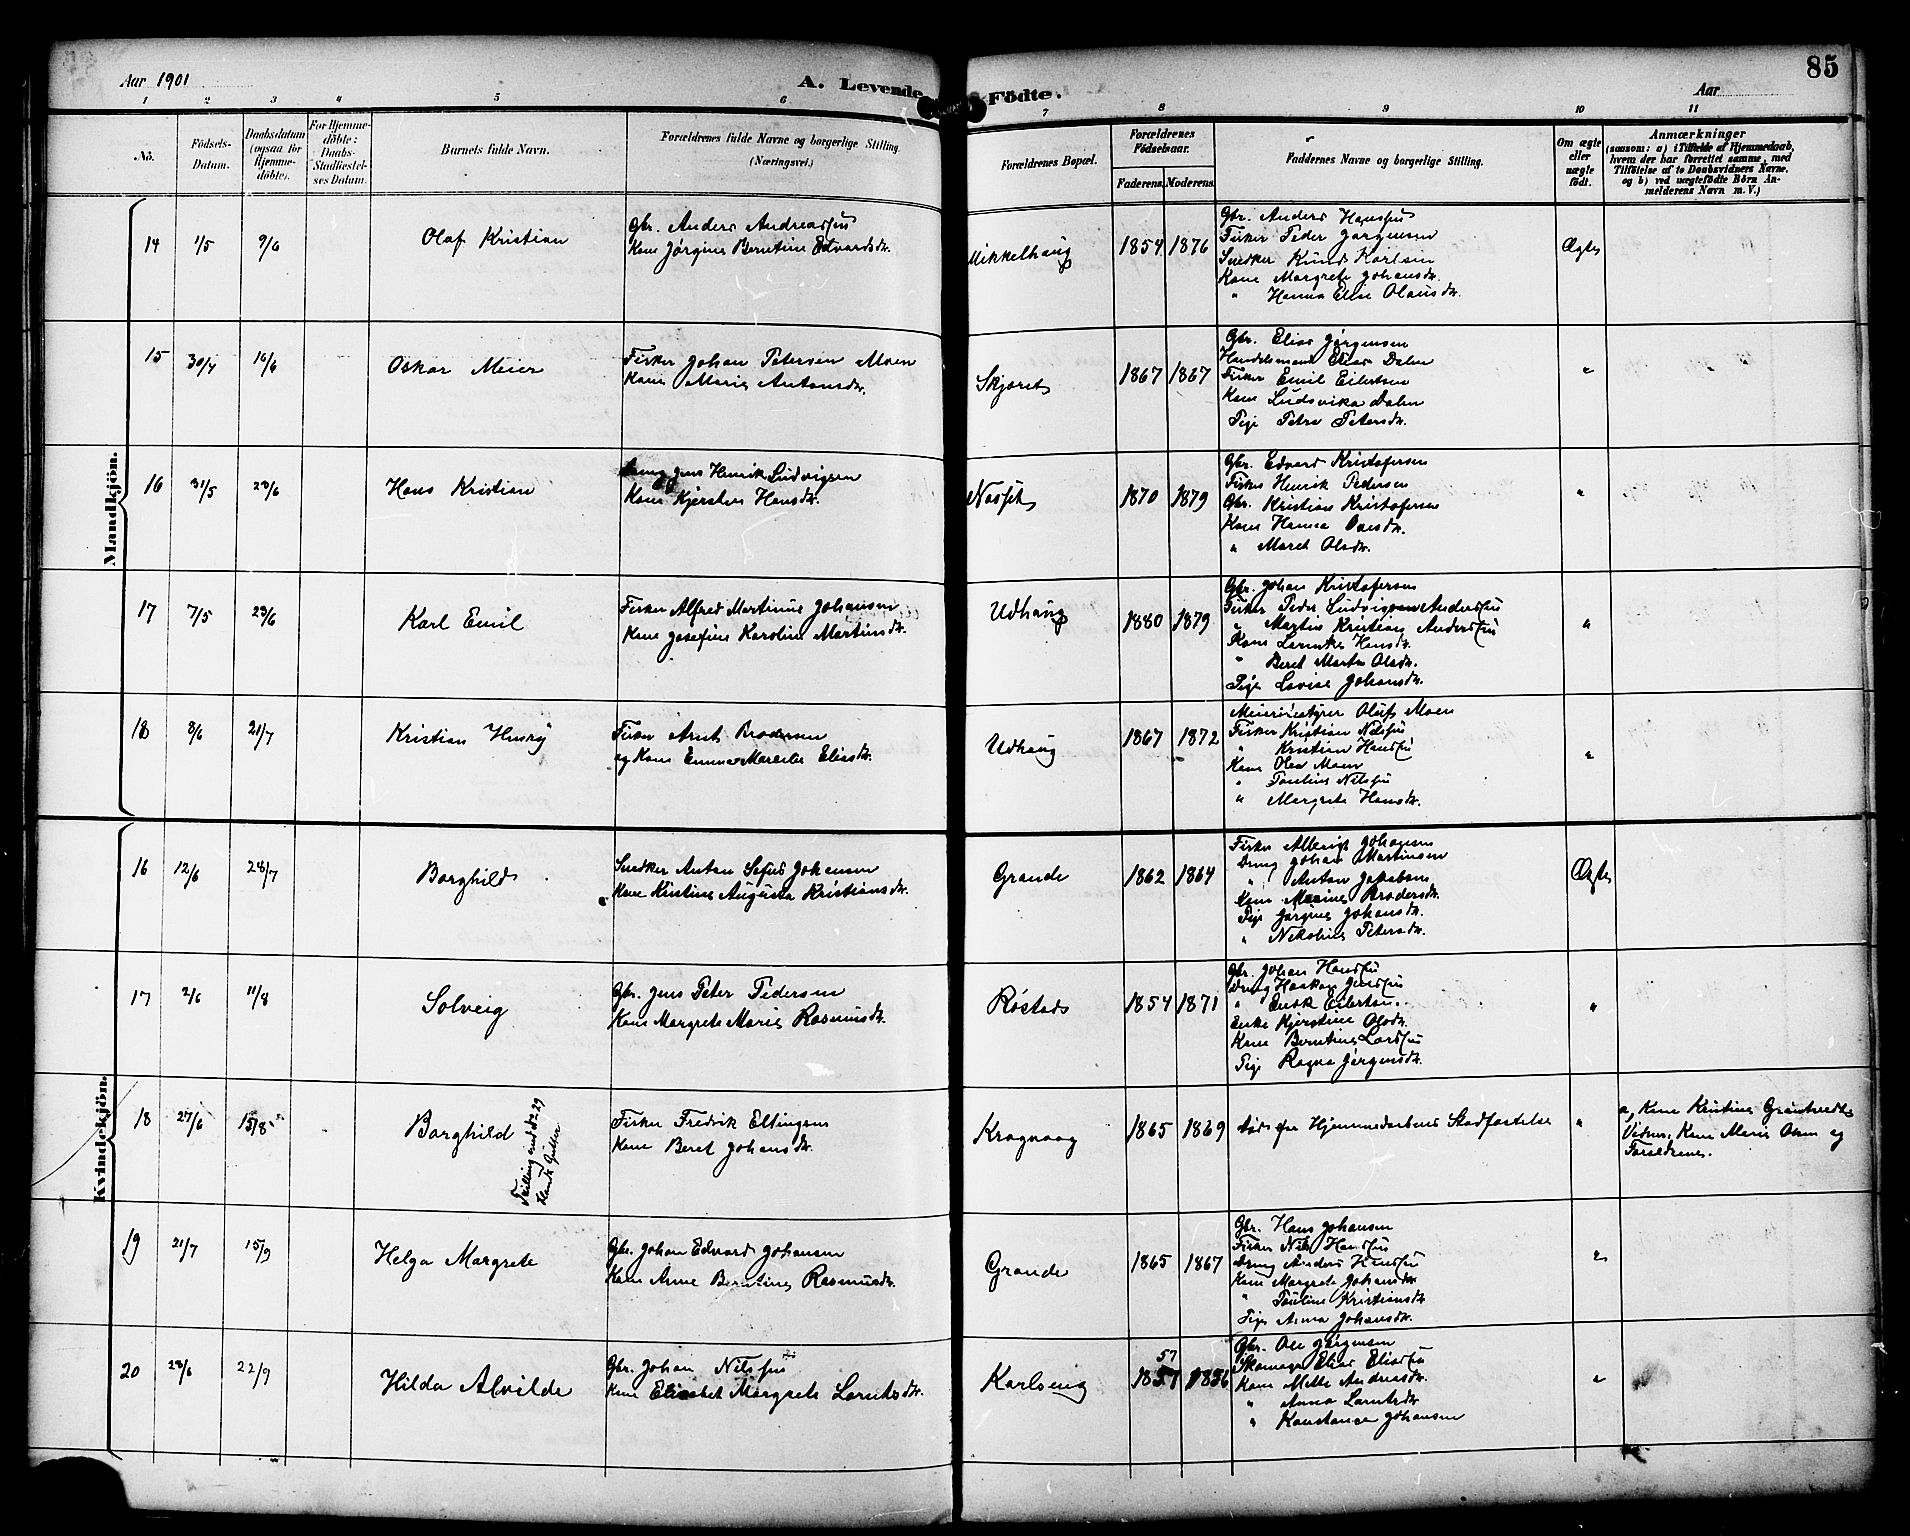 Aar 1901
A. Levende Födte.
85
Aar
1 2 3 4 5 6 7 8 9 10 11
No.
Födsels-Datum.
Daabsdatum (ogsaa for hjemme-döbte).
For Hjemme-döbte: Daabs-Stadfæstel-ses Datum.
Barnets fulde Navn.
Forældrenes fulde Navne og borgerlige Stilling. (Næringsvei.)
Forældrenes Bopæl.
Forældrenes Födselsaar.
Faderens. Moderens.
Faddernes Navne og borgerlige Stilling.
Om ægte eller uægte födt.
Anmærkninger
(saasom: a) i Tilfælde af Hjemmedaab,
hvem der har forrettet samme, med
Tilföielse af to Daabsvidners Navne,
og b) ved uægtefödte Börn An-
melderens Navn m. V.)
Mandkjön.
14 1/5 9/6 Olaf Kristian
Gbr. Anders Andreasen
Kone Jørgine Berntine Edvardsdtr.
Mikkelhaug 1854 1876
Gbr. Anders Hansen
Fisker Peder Jørgensen
Snedker Knud Karlsen
Kone Margrete Johansdtr.
" Hanna Elise Olausdtr.
Ægte
15 30/4 16/6 Oskar Meier
Fisker Johan Petersen Moen
Kone Marie Antonsdtr.
Skjøret 1867 1867
Gbr. Elias Jørgensen
Handelsmand Elias Dalen
Fisker Emil Eilertsen
Kone Ludvika Dalen
Pige Petra Petersdtr.
"
16 31/5 23/6 Hans Kristian
Jens Henrik Ludvigsen
Kone Kjersten Hansdtr.
1870 1879
Gbr. Edvard Kristofersen
Fisker Henrik Pedersen
Gbr. Kristian Kristofersen
Kone Hanna
" Maret Olsdtr.
"
17 7/5 23/6 Karl Emil
Fisker Alfred Martinus Johansen
Kone Josefine Karoline Martinsdtr.
Udhaug 1880 1879
Gbr. Johan Kristofersen
Fisker Peder Ludvigsen Andersen
" Martin Kristian Andersen
Kone Lorentse Hansdtr.
" Beret Marta Olsdtr.
Pige Lovise Johansdtr.
"
18 8/6 21/7 Kristian Henry
Fisker Arnt Brodersen
og Kone Emma Marcelie Eliasdtr.
Udhaug 1867 1872
Meieribestyrer Oluf Moen
Fisker Kristian Nilsen
" Kristian Hansen
Kone Olea Moen
" Pauline Nilsen
" Margrete Hansdtr.
"
Kvindekjön.
16 12/6 28/7 Borghild
Snedker Anton Sefus Johansen
Kone Kristine Augusta Kristiansdtr.
Grande 1862 1864
Fisker Albrigt Johansen
Dreng Johan Martinsen
" Anton Jakobsen
Kone Marine Brodersdtr.
Pige Jørgine Johansdtr.
" Nikoline Petersdtr.
Ægte
17 2/6 11/8 Solveig
Gbr. Jens Peter Pedersen
Kone Margrete Marie Rasmusdtr.
Røstad 1854 1871
Gbr. Johan Hansen
Dreng Haakon Jensen
" Enok Eilertsen.
Enke Kjerstine Olsdtr.
Kone Berntine Larsen
Pige Ragna Jørgensdtr.
"
18 27/6 15/8 Borghild
Tvilling med No 29
blandt Gutter
Fisker Fredrik Ellingsen
Kone Beret Johansdtr.
Kragvaag 1865 1869
Død før Hjemmedaabens Stadfæstelse
"
a, Kone Kristine Grøntvedt
Vidner: Kone Marie Olsen og
Forældrene.
19 21/7 15/9 Helga Margrete
Gbr. Johan Edvard Johansen
Kone Anne Berntine Rasmusdtr.
Grande 1865 1867
Gbr. Hans Johansen
Fisker Nils Hansen
Dreng Anders Hansen
Kone Margrete Johansdtr.
" Pauline Kristiansdtr.
Pige Anna Johansdtr.
"
20 28/6 22/9 Hilda Alvilde
Gbr. Johan Nilssen
Kone Elisabet Margrete Lorntsdtr.
Karlseng 57 1857 1856
Gbr. Ole Jørgensen
Skomager Elias Eliassen
Kone Mette Andreasdtr.
" Anna Lorntsdtr.
" Konstanse Johansen
"